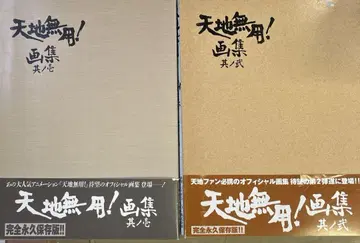 天地無用!
画集
其ノ壱
あの大人気アニメーション「天地無用!」待望のオフィシャル画集 登場──!
天地無用!画集
其ノ壱
完全永久保存版!!
天地無用!
画集
其ノ弐
天地ファン必携のオフィシャル画集 待望の第2弾遂に登場!!
天地無用!画集
其ノ弐
完全永久保存版!!